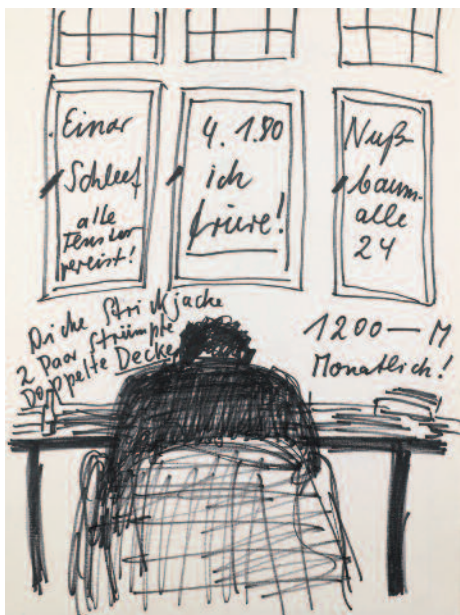 Einar
Schleef
alle
Fenster
vereist!
4. 1. 80
ich
friere!
Nuß-
baum-
alle
24
Dicke Strickjacke
2 Paar Strümpfe
Doppelte Decke
1200 — M
Monatlich!